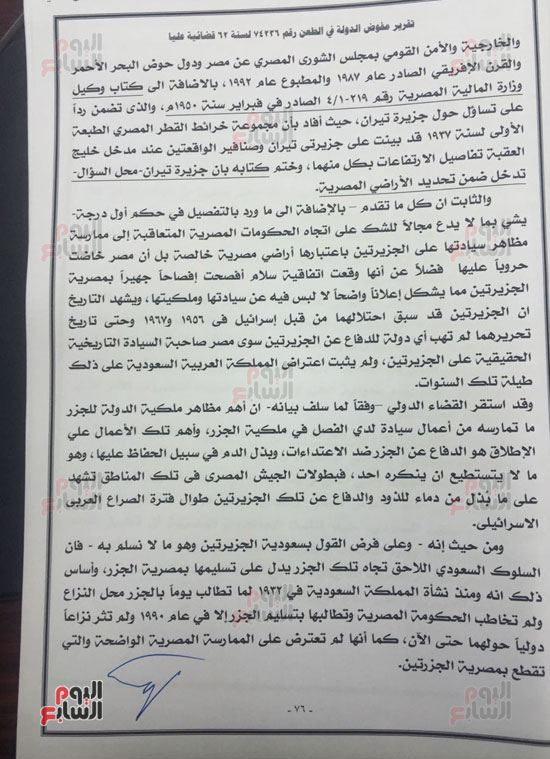 تقرير مفوض الدولة في الطعن رقم ٧٤٢٣٦ لسنة ٦٢ قضائية عليا
والخارجية والأمن القومي بمجلس الشورى المصري عن مصر ودول حوض البحر الأحمر
والقرن الإفريقي الصادر عام ١٩٨٧ والمطبوع عام ١٩٩٢، بالاضافة الى كتاب وكيل
وزارة المالية المصرية رقم ٢١٩-٤/١ الصادر في فبراير سنة ١٩٥٠م، والذى تضمن رداً
على تساؤل حول جزيرة تيران، حيث أفاد بأن مجموعة خرائط القطر المصري الطبعة
الأولى لسنة ١٩٣٧ قد بينت على جزيرتى تيران وصنافير الواقعتين عند مدخل خليج
العقبة تفاصيل الارتفاعات بكل منهما، وختم كتابه بان جزيرة تيران-محل السؤال-
تدخل ضمن تحديد الأراضي المصرية.
والثابت ان كل ما تقدم – بالإضافة الى ما ورد بالتفصيل في حكم أول درجة-
يشي بما لا يدع مجالاً للشك على اتجاه الحكومات المصرية المتعاقبة إلى ممارسة
مظاهر سيادتها على الجزيرتين باعتبارها أراضي مصرية خالصة بل أن مصر خاضت
حروباً عليها فضلاً عن أنها وقعت اتفاقية سلام أفصحت إفصاحاً جهيراً بمصرية
الجزيرتين مما يشكل إعلاناً واضحاً لا لبس فيه عن سيادتها وملكيتها، ويشهد التاريخ
ان الجزيرتين قد سبق احتلالهما من قبل إسرائيل فى ١٩٥٦ و١٩٦٧ وحتى تاريخ
تحريرهما لم تهب أي دولة للدفاع عن الجزيرتين سوى مصر صاحبة السيادة التاريخية
الحقيقية على الجزيرتين، ولم يثبت اعتراض المملكة العربية السعودية على ذلك
طيلة تلك السنوات.
وقد استقر القضاء الدولي –وفقاً لما سلف بيانه- ان أهم مظاهر ملكية الدولة للجزر
ما تمارسه من أعمال سيادة لدي الفصل في ملكية الجزر، وأهم تلك الأعمال علي
الإطلاق هو الدفاع عن الجزر ضد الاعتداءات، وبذل الدم في سبيل الحفاظ عليها، وهو
ما لا يستطيع ان ينكره احد، فبطولات الجيش المصرى فى تلك المناطق تشهد
على ما بُذل من دماء للذود والدفاع عن تلك الجزيرتين طوال فترة الصراع العربى
الاسرائيلى.
ومن حيث إنه - وعلى فرض القول بسعودية الجزيرتين وهو ما لا نسلم به - فان
السلوك السعودي اللاحق تجاه تلك الجزر يدل على تسليمها بمصرية الجزر، وأساس
ذلك انه ومنذ نشأة المملكة السعودية في ١٩٣٢ لما تطالب يوماً بالجزر محل النزاع
ولم تخاطب الحكومة المصرية وتطالبها بتسليم الجزر إلا في عام ١٩٩٠ ولم تثر نزاعاً
دولياً حولهما حتى الآن، كما أنها لم تعترض على الممارسة المصرية الواضحة والتي
تقطع بمصرية الجزرتين.
- ٧٦ -
اليوم السابع